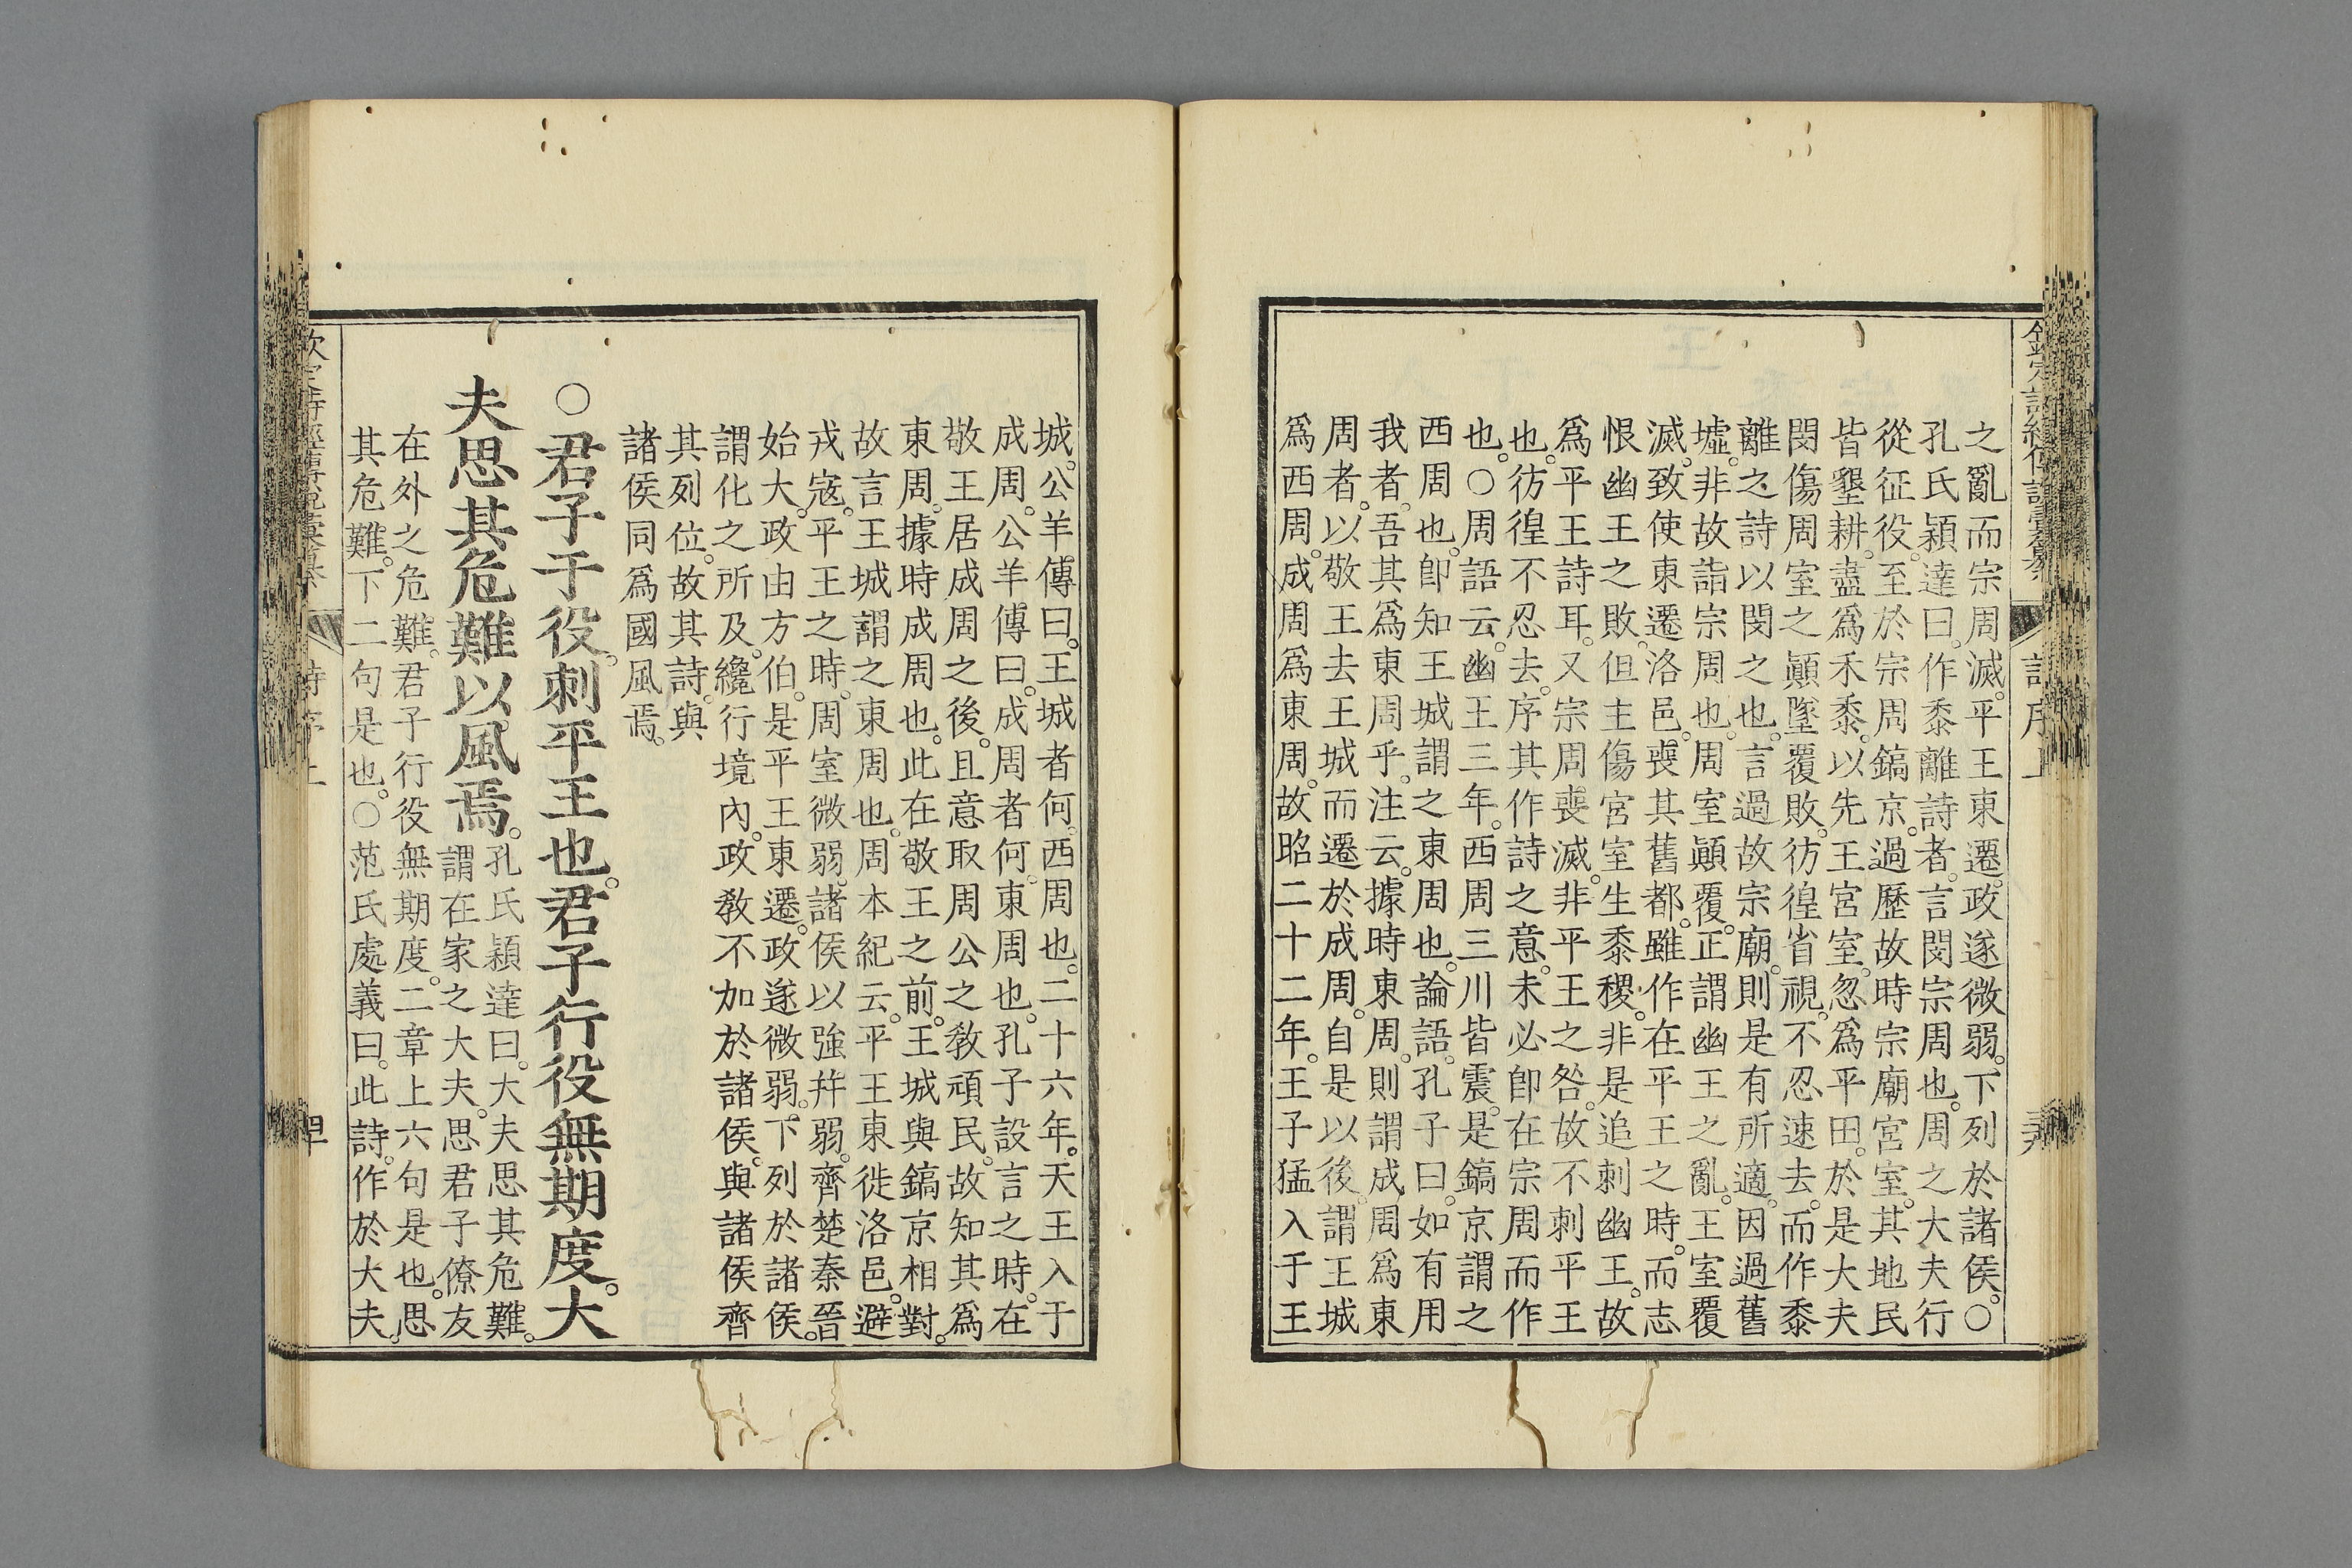 之亂而宗周滅。平王東遷。政遂微弱。下列於諸侯。○
孔氏穎達曰。作黍離詩者。言閔宗周也。周之大夫行
從征役。至於宗周鎬京。過歷故時宗廟宮室。其地民
皆墾耕。盡爲禾黍。以先王宮室。忽爲平田。於是大夫
閔傷周室之顚墜覆敗。彷徨省視。不忍速去。而作黍
離之詩以閔之也。言過故宗廟。則是有所適。因過舊
墟。非故詣宗周也。周室顚覆。正謂幽王之亂。王室覆
滅。致使東遷洛邑。喪其舊都。雖作在平王之時。而志
恨幽王之敗。但主傷宮室生黍稷。非是追刺幽王。故
爲平王詩耳。又宗周喪滅。非平王之咎。故不刺平王
也。彷徨不忍去。序其作詩之意。未必卽在宗周而作
也。○周語云。幽王三年。西周三川皆震。是鎬京謂之
西周也。卽知王城謂之東周也。論語。孔子曰。如有用
我者。吾其爲東周乎。注云。據時東周。則謂成周爲東
周者。以敬王去王城而遷於成周。自是以後。謂王城
爲西周。成周爲東周。故昭二十二年。王子猛入于王
城。公羊傳曰。王城者何。西周也。二十六年。天王入于
成周。公羊傳曰。成周者何。東周也。孔子設言之時。在
敬王居成周之後。且意取周公之敎頑民。故知其爲
東周。據時成周也。此在敬王之前。王城與鎬京相對。
故言王城謂之東周也。周本紀云。平王東徙洛邑。避
戎寇。平王之時。周室微弱。諸侯以強幷弱。齊楚秦晉
始大。政由方伯。是平王東遷。政遂微弱。下列於諸侯。
謂化之所及。纔行境內。政敎不加於諸侯。與諸侯齊
其列位。故其詩。與
諸侯同爲國風焉。
○君子于役。刺平王也。君子行役無期度。大
夫思其危難以風焉。
孔氏穎達曰。大夫思其危難。
謂在家之大夫。思君子僚友
在外之危難。君子行役無期度。二章上六句是也。思
其危難。下二句是也。○范氏處義曰。此詩。作於大夫。